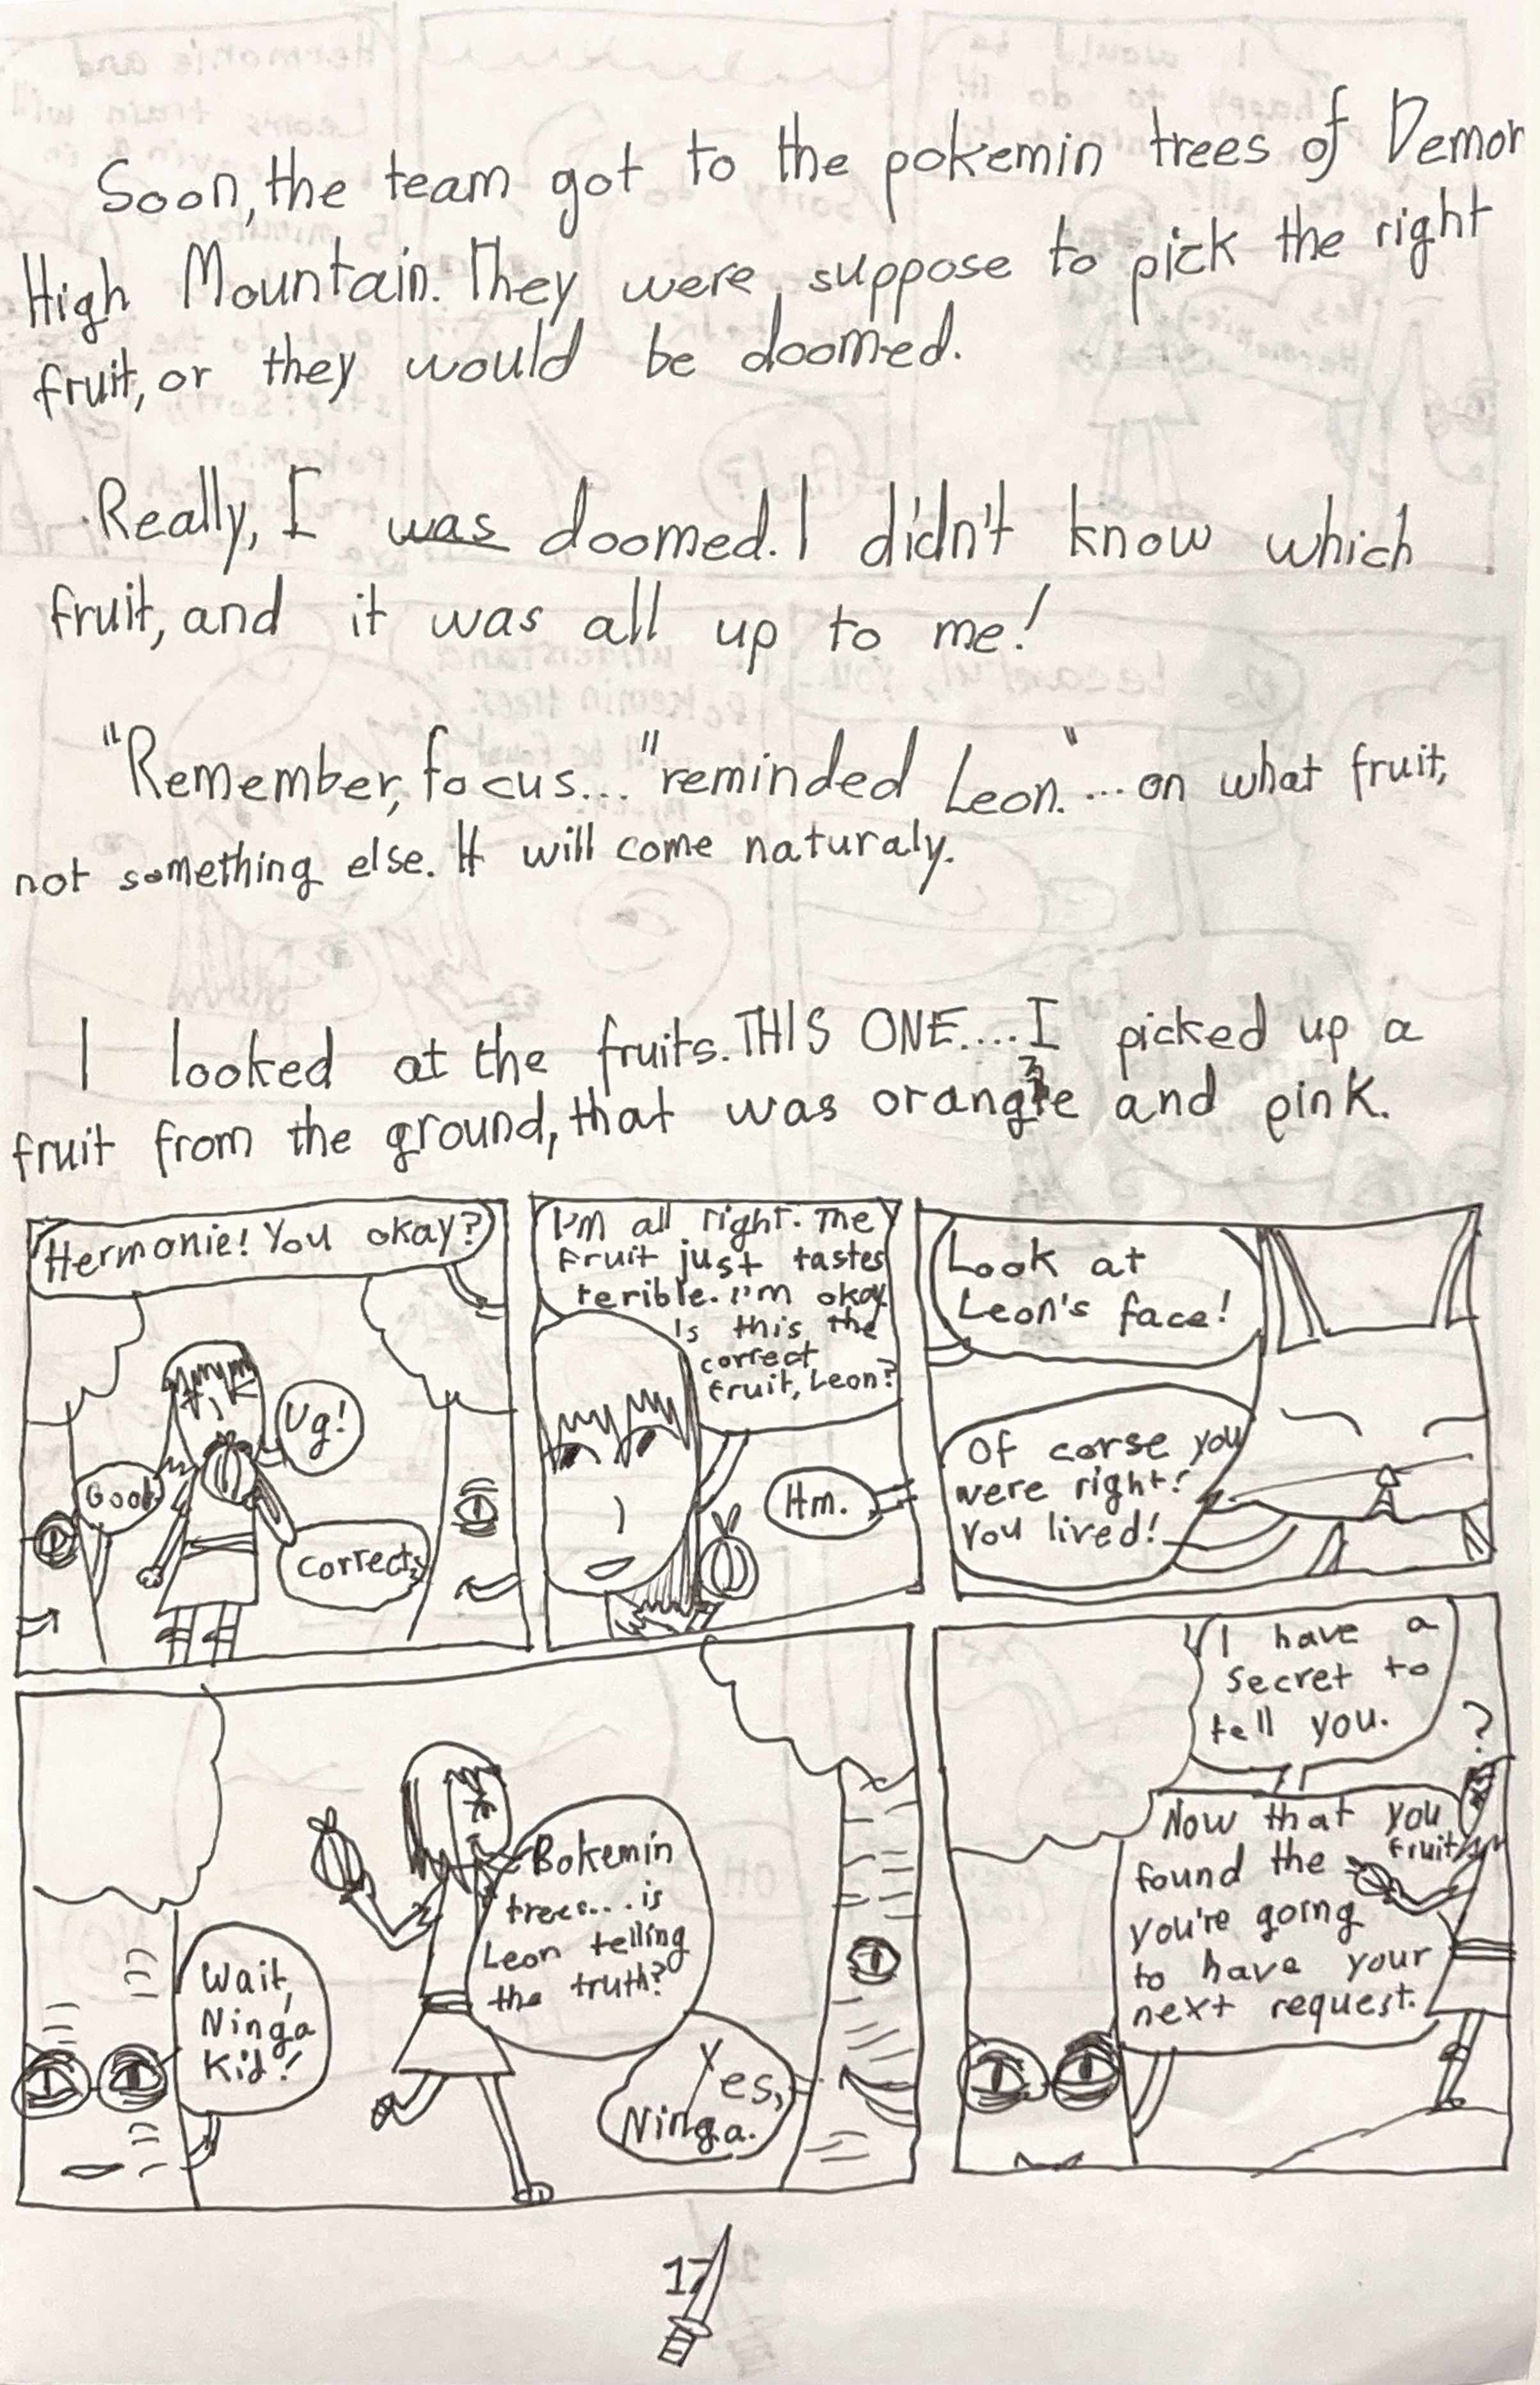 Soon, the team got to the pokemin trees of Demon
High Mountain. They were suppose to pick the right
fruit, or they would be doomed.
Really, I was doomed. I didn't know which
fruit, and it was all up to me!
"Remember, focus..." reminded Leon. "...on what fruit,
not something else. It will come naturaly.
I looked at the fruits. THIS ONE.... I picked up a
fruit from the ground, that was orange and pink.
Hermonie! You okay?
Ug!
Good.
Correct.
I'm all right. The
fruit just tastes
terible. I'm okay.
Is this the
correct
fruit, Leon?
Hm.
Look at
Leon's face!
Of corse you
were right!
You lived!
Wait,
Ninga
Kid!
Bokemin
trees.... is
Leon telling
the truth?
Yes,
Ninga.
I have a
secret to
tell you.
?
Now that you
found the fruit
you're going
to have your
next request.
17